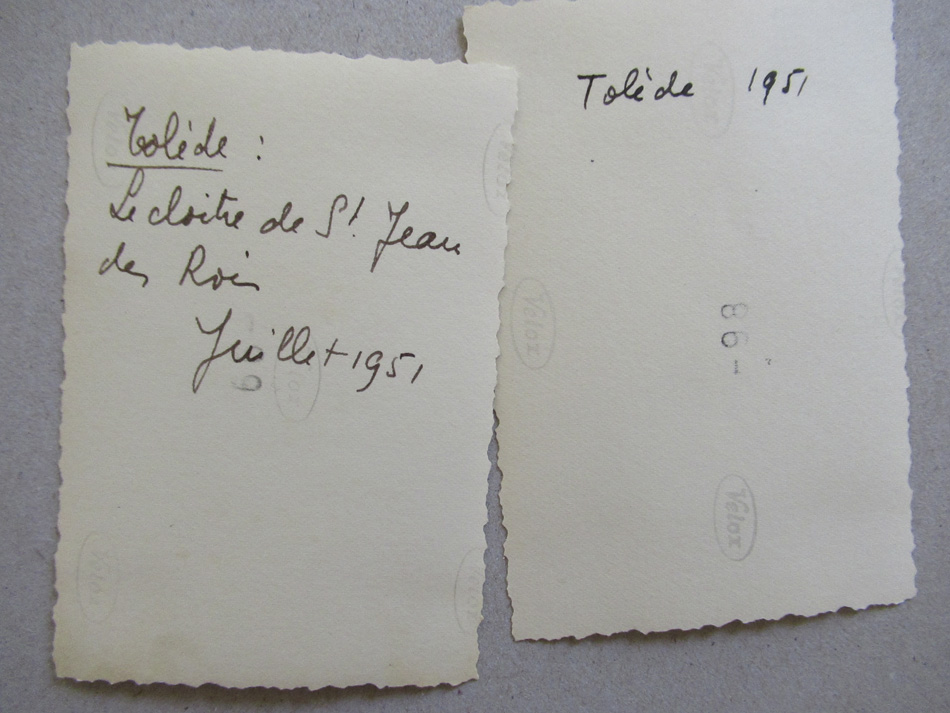 Tolède :
Le cloitre de St Jean
des Rois
Juillet 1951
Tolède 1951
Velox
86-
Velox